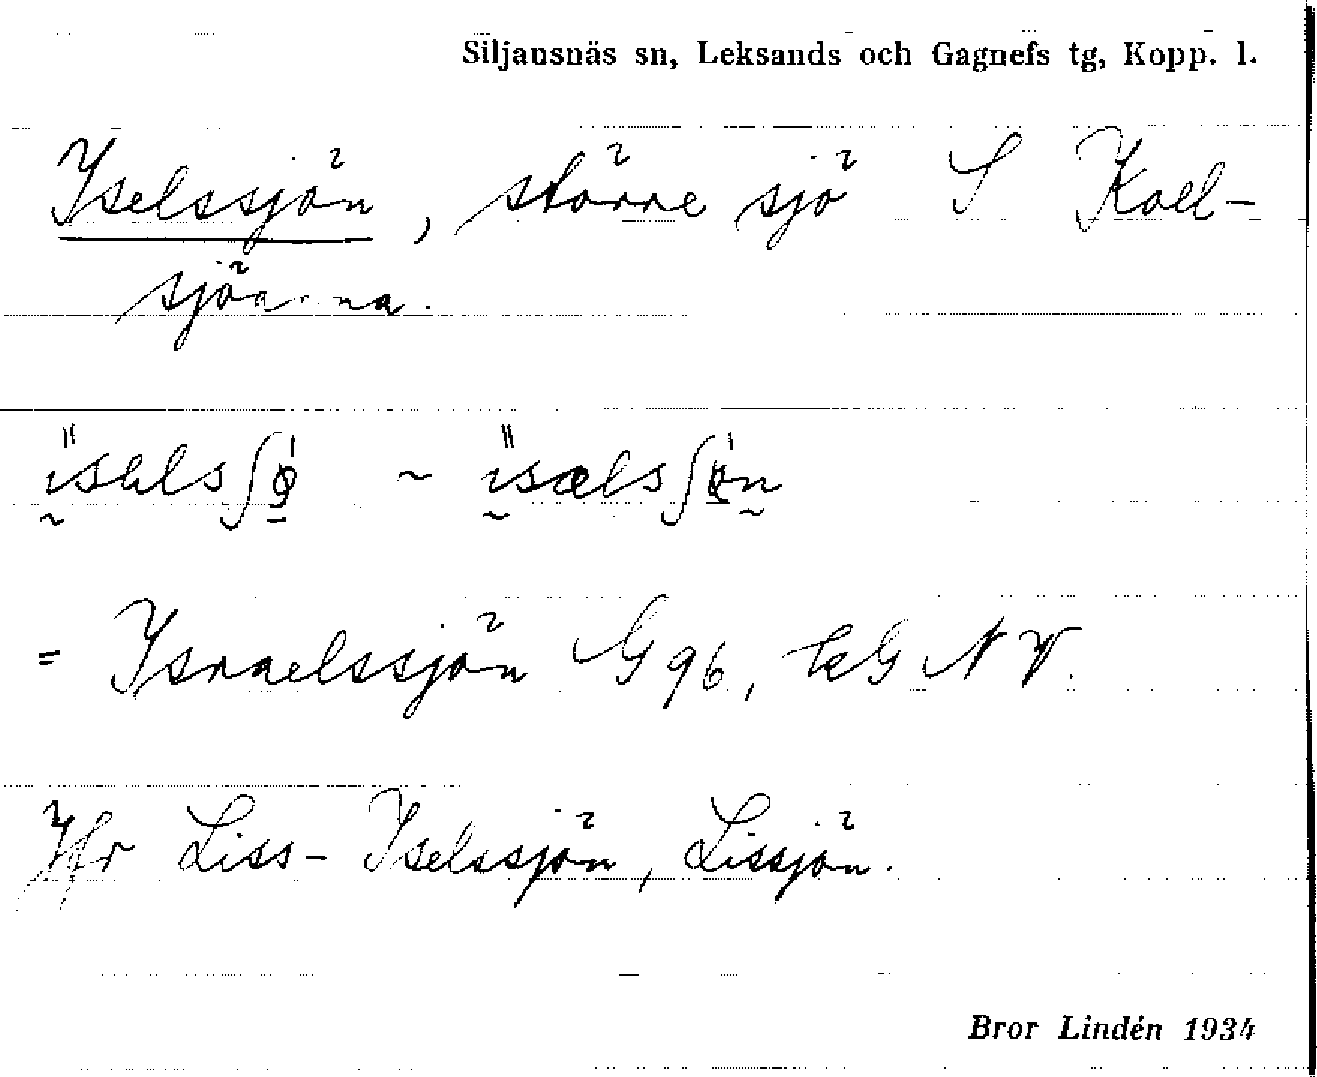 Siljansnäs sn, Leksands och Gagnefs tg, Kopp. l.
Iselssjön, större sjö S Koll-
sjöarna.
= Israelssjön G 96, kG NV.
Jfr Liss-Iselssjön, Lissjön.
Bror Lindén 1934